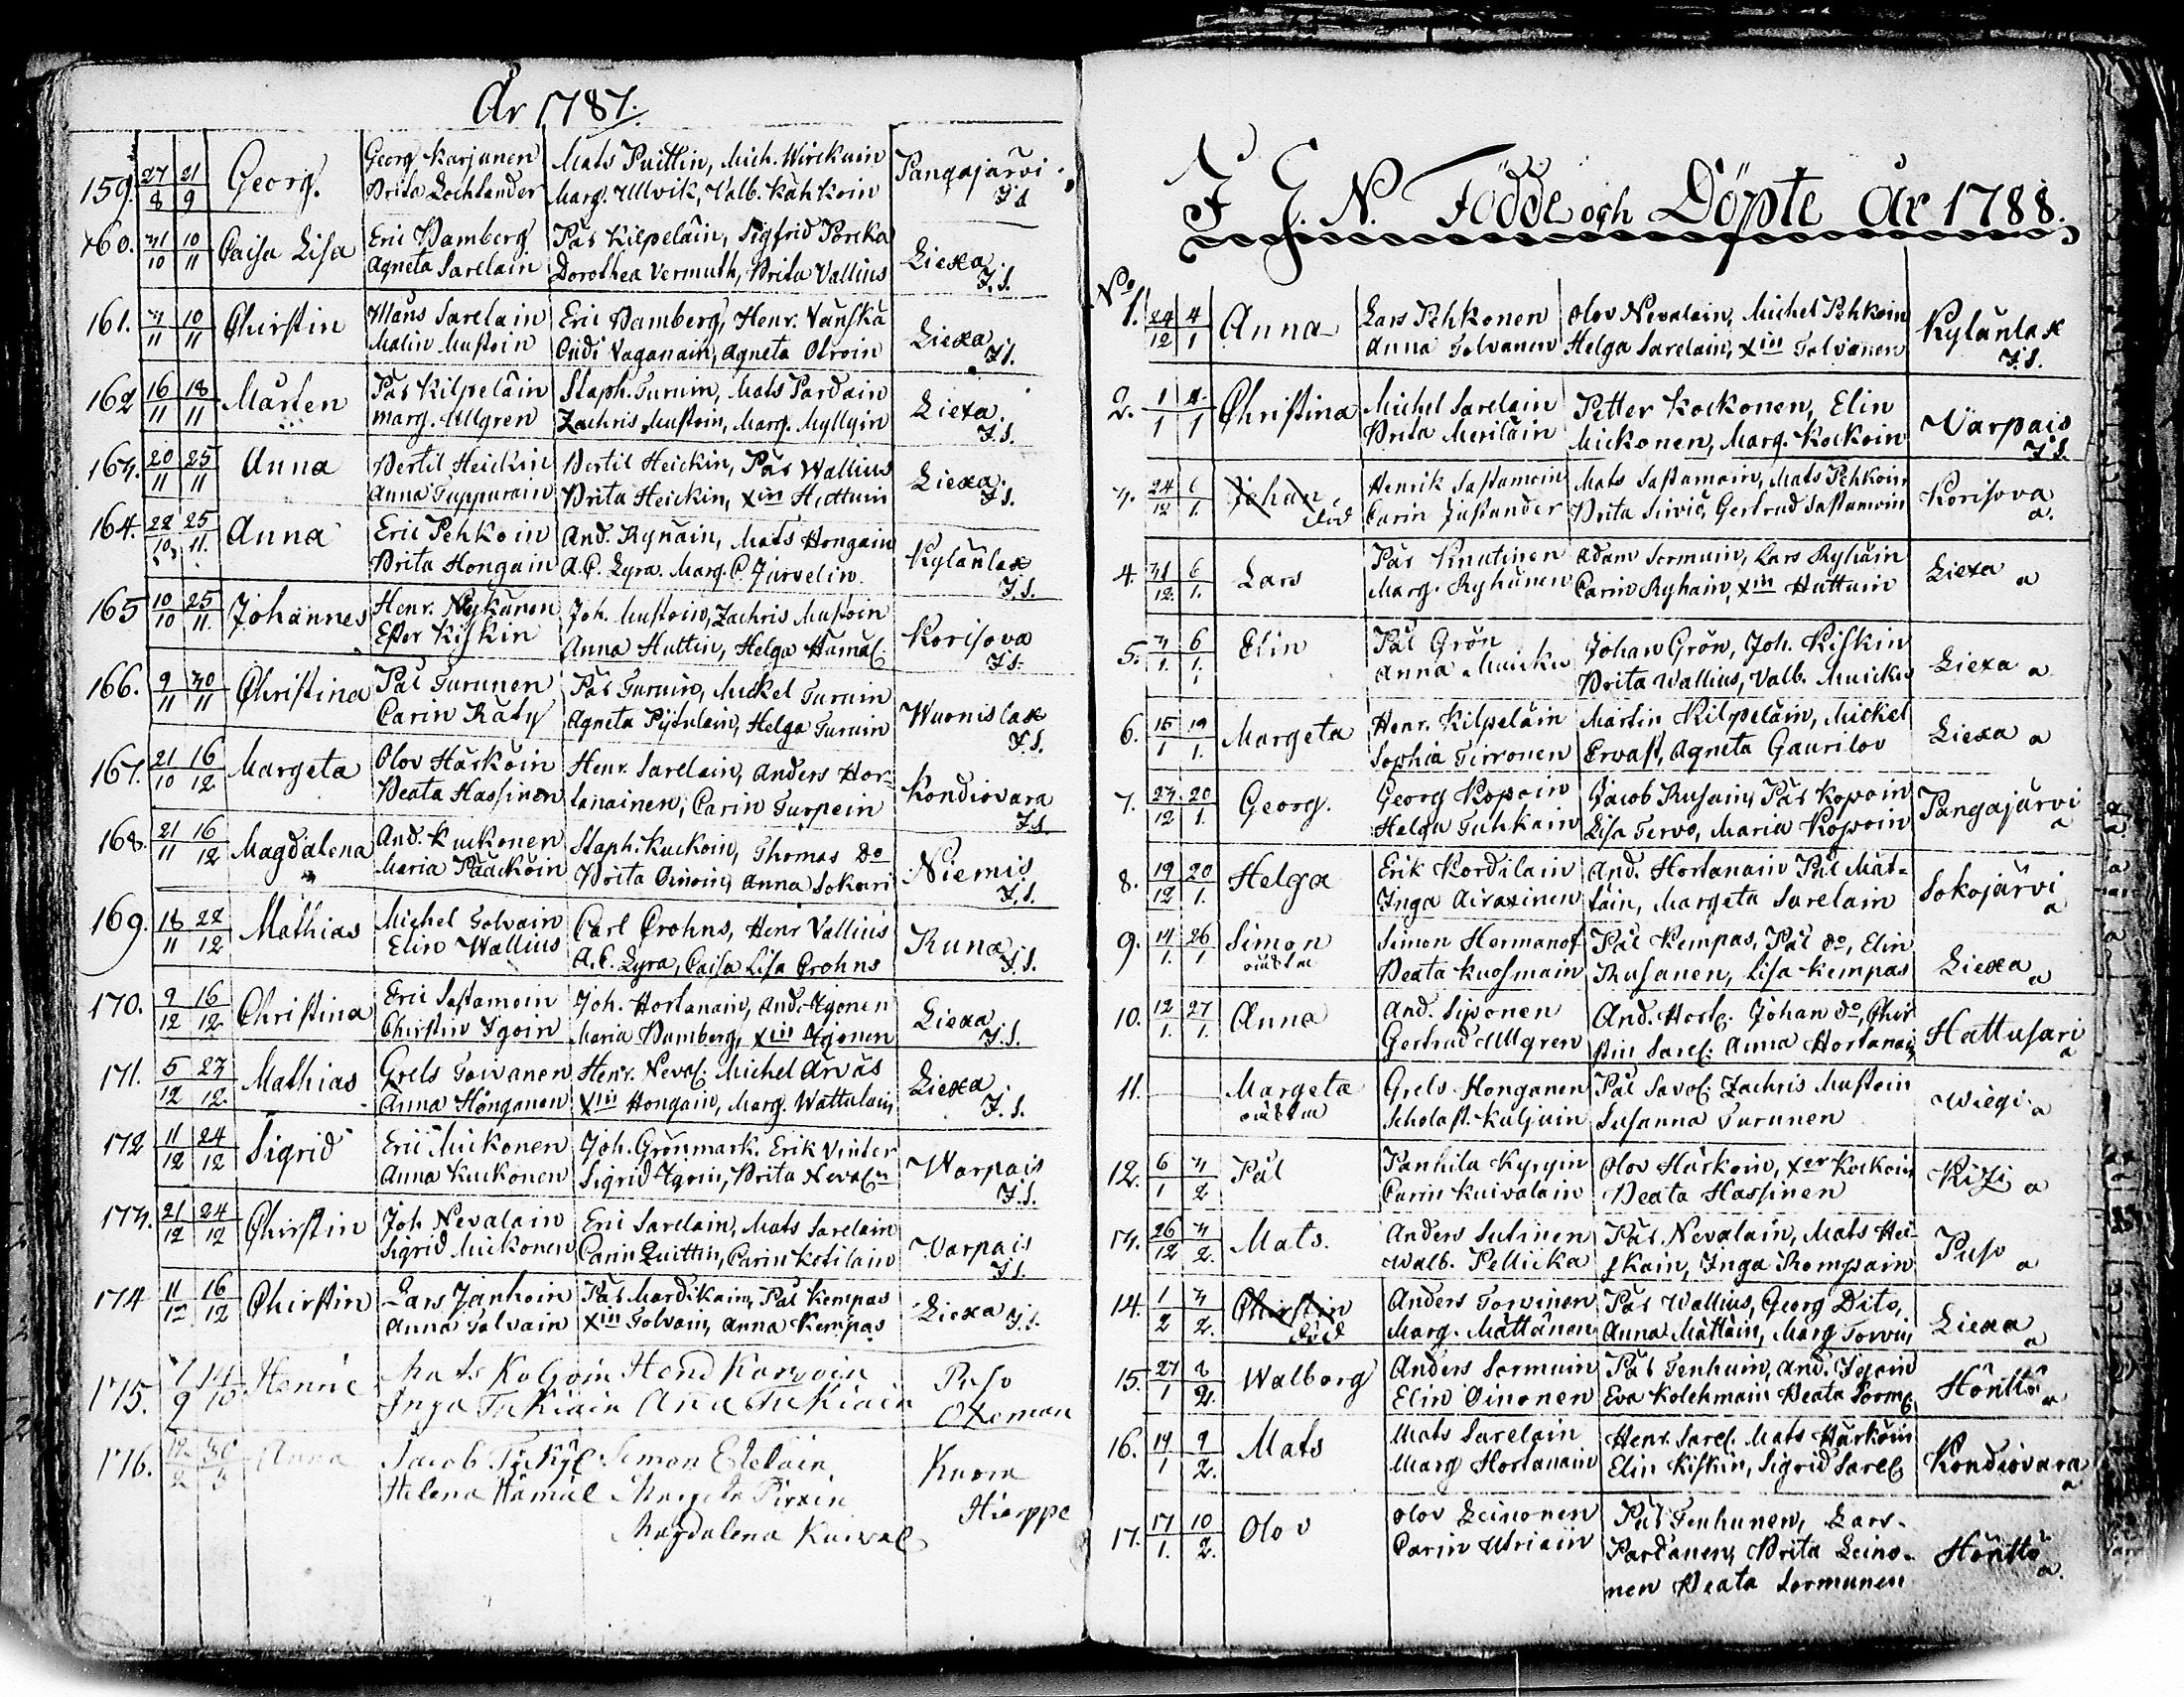 År 1787.
159. 27/8 21/9 Georg. Georg Karjunen Mats Puittin, Mich. Wirckuin Pangajärvi
Brita Lochlander Marg. Ullvik, Valb. Kähkoin J.S.
160. 31/10 10/11 Caisa Lisa Eric Bamberg Pår Kilpeläin, Sigfrid Porcka Liexa
Agneta Sarelain Dorothea Vermuth, Brita Vallius J.S.
161. 3/11 10/11 Chirstin Måns Sarelain Eric Bamberg, Henr. Vänskä Liexa
Malin Mustoin Agneta Otroin J.S.
162 16/11 18/11 Mårten Pår Kilpeläin Staph. Turuin, Mats Pardain Liexa
Marg. Ullgren Zachris Mustoin, Marg. Myllyin J.S.
163. 20/11 25/11 Anna Bertil Heickin Bertil Heickin, Pår Wallius Liexa
Anna Tuppurain Brita Heickin, Xin Huttuin J.S.
164. 22/10 25/11. Anna Eric Pehkoin And. Rynäin, Mats Hongain Kylänlax
Brita Hongain A. C. Lyra. Marg. C. Järvelin J.S.
165 10/10 25/11 Johannes Henr. Nykänen Joh. Mustoin, Zachris Mustoin Korisova
Ester Kiskin Anna Huttin, Helga Hämäl. J.S.
166. 9/11 30/11 Christina Pål Turunen Pår Turuin, Mickel Turuin Wuonislax
Carin Räty Agneta Pijtulain, Helga Turuin J.S.
167. 21/10 16/12 Margeta Olov Härköin Henr. Sarelain, Anders Hor- Kondiovara
Beata Hassinen tanainen, Carin Turpein J.S.
168. 21/11 16/12 Magdalena And. Kuckonen Staph. Kuckoin, Thomas Do Niemis
Maria Pääcköin Brita Oinoin, Anna Sokuri J.S.
169. 18/11 22/12 Mathias Michel Tolvain Carl Crohns, Henr Vallius Runa
Elin Wallius A. C. Lyra, Caisa Lisa Crohns J.S.
170. 9/12 16/12 Christina Eric Sastamoin Joh. Hortanain, And. Igonen Liexa
Chirstin Igoin Maria Bamberg, Xin Igonen J.S.
171. 5/12 23/12 Mathias Grels Toivanen Henr. Neval. Michel Arväs Liexa
Anna Hönganen Xin Hongain, Marg. Wattulain J.S.
172 11/12 24/12 Sigrid Eric Mickonen Joh. Grönmark. Erik Vinter Warpais
Anna Kuckonen Sigrid Igoin, Brita Neval:n J.S.
173. 21/12 24/12 Chirstin Joh Nevalain Eric Sarelain, Mats Sarelain Varpais
Sigrid Mickonen Carin Quittin, Carin Kotilain J.S.
174 11/12 16/12 Chirstin Lars Janhoin Pår Mardikain, Pål Kempas Liexa J.S.
Anna Tolvain Xin Tolvain, Anna Kempas
175. 7/9 14/10 Henric Mats Koljoin Hend Karvoin Puso
Inga Tukiain Ana Tukiain Oxeman
176. Anna Jacob Tyckyl Simon Eteläin Kuora
Helena Hämäl Margeta Piroin Hierppe
Magdalena Kuival
J. J. N. Födde och Döpte År 1788.
No
1. 24/12 4/1 Anna Lars Pehkonen Olov Nevalain, Michel Pehkoin Kylänlax
Anna Tolvanen Helga Sarelain, Xin Tolvanen J.S.
2. 1/1 4/1 Christina Michel Sarelain Petter Kockonen, Elin Varpais
Brita Meriläin Mickonen, Marg. Kockoin J.S.
3. 24/12 6/1. Johan Henrik Sastamoin Mats Sastamoin, Mats Pehkoin Korisova
död Carin Justander Brita Sirvic, Gertrud Sastamoin a.
4. 31/12. 6/1. Lars Pår Knutinen Adam Sormuin, Lars Ryhäin Liexa a
Marg. Ryhänen Carin Ryhäin, Xin Huttuin
5. 3/1. 6/1. Elin Pål Grön Johan Grön, Joh. Kiskin Liexa a
Anna Muicku Brita Wallius, Valb. Muicku
6. 15/1 19/1. Margeta Henr. Kilpeläin Mårtin Kilpeläin, Mickel Liexa a
Sophia Tirronen Ervast, Agneta Gaurilov
7. 23/12 20/1. Georg. Georg Kopoin Jacob Rusain, Pår Kopoin Pangajärvi
Helga Tuhkain Lisa Tervo, Maria Kopoin a
8. 19/12 20/1. Helga Erik Kordilain And. Hortanain Pål Mät- Sokojärvi
Inga Airaxinen täin, Margeta Sarelain a
9. 14/1. 26/1 Simon Simon Hermanof Pål Kempas, Pål do, Elin Liexa
oäckta Beata Kuosmain Rusanen, Lisa Kempas a
10. 12/1. 27/1. Anna And. Sivonen And. Hort. Johan do, Chir Hattusari
Gertrud Ullgren stin Sarel. Anna Hortanain a
11. Margeta Grels Honganen Pål Savol. Zachris Mustoin Wiegi a
oäckta Scholast. Kuljuin Susanna Turunen
12. 6/1 3/2 Pål Panhila Kyyin Olov Härköin, Xer Kockoin Kizi a
Carin Kuivalain Beata Hassinen
13. 26/12 3/2. Mats. Anders Sutinen Pår Nevalain, Mats Hei- Puso a
Walb. Pellicka skain, Inga Rompain
14. 1/2 3/2. Chirstin Anders Torvinen Pår Wallius, Georg Dito, Liexa
död Marg. Mättänen Anna Mättäin, Marg Torvin a
15. 27/1 8/2. Walborg Anders Sormuin Pår Tenhuin, And. Igoin Hönttö
Elin Oinonen Eva Kolehmain Beata Sorm. a
16. 14/1 9/2. Mats Mats Sarelain Henr. Sarel. Mats Härköin Kondiovara
Marg Hortanain Elin Kiskin, Sigrid Sarel. a
17. 17/1. 10/2. Olov Olov Leinonen Pår Tenhunen, Lars
Carin Utriain Pardanen, Brita Leino- Hönttö
nen Beata Sormunen a.